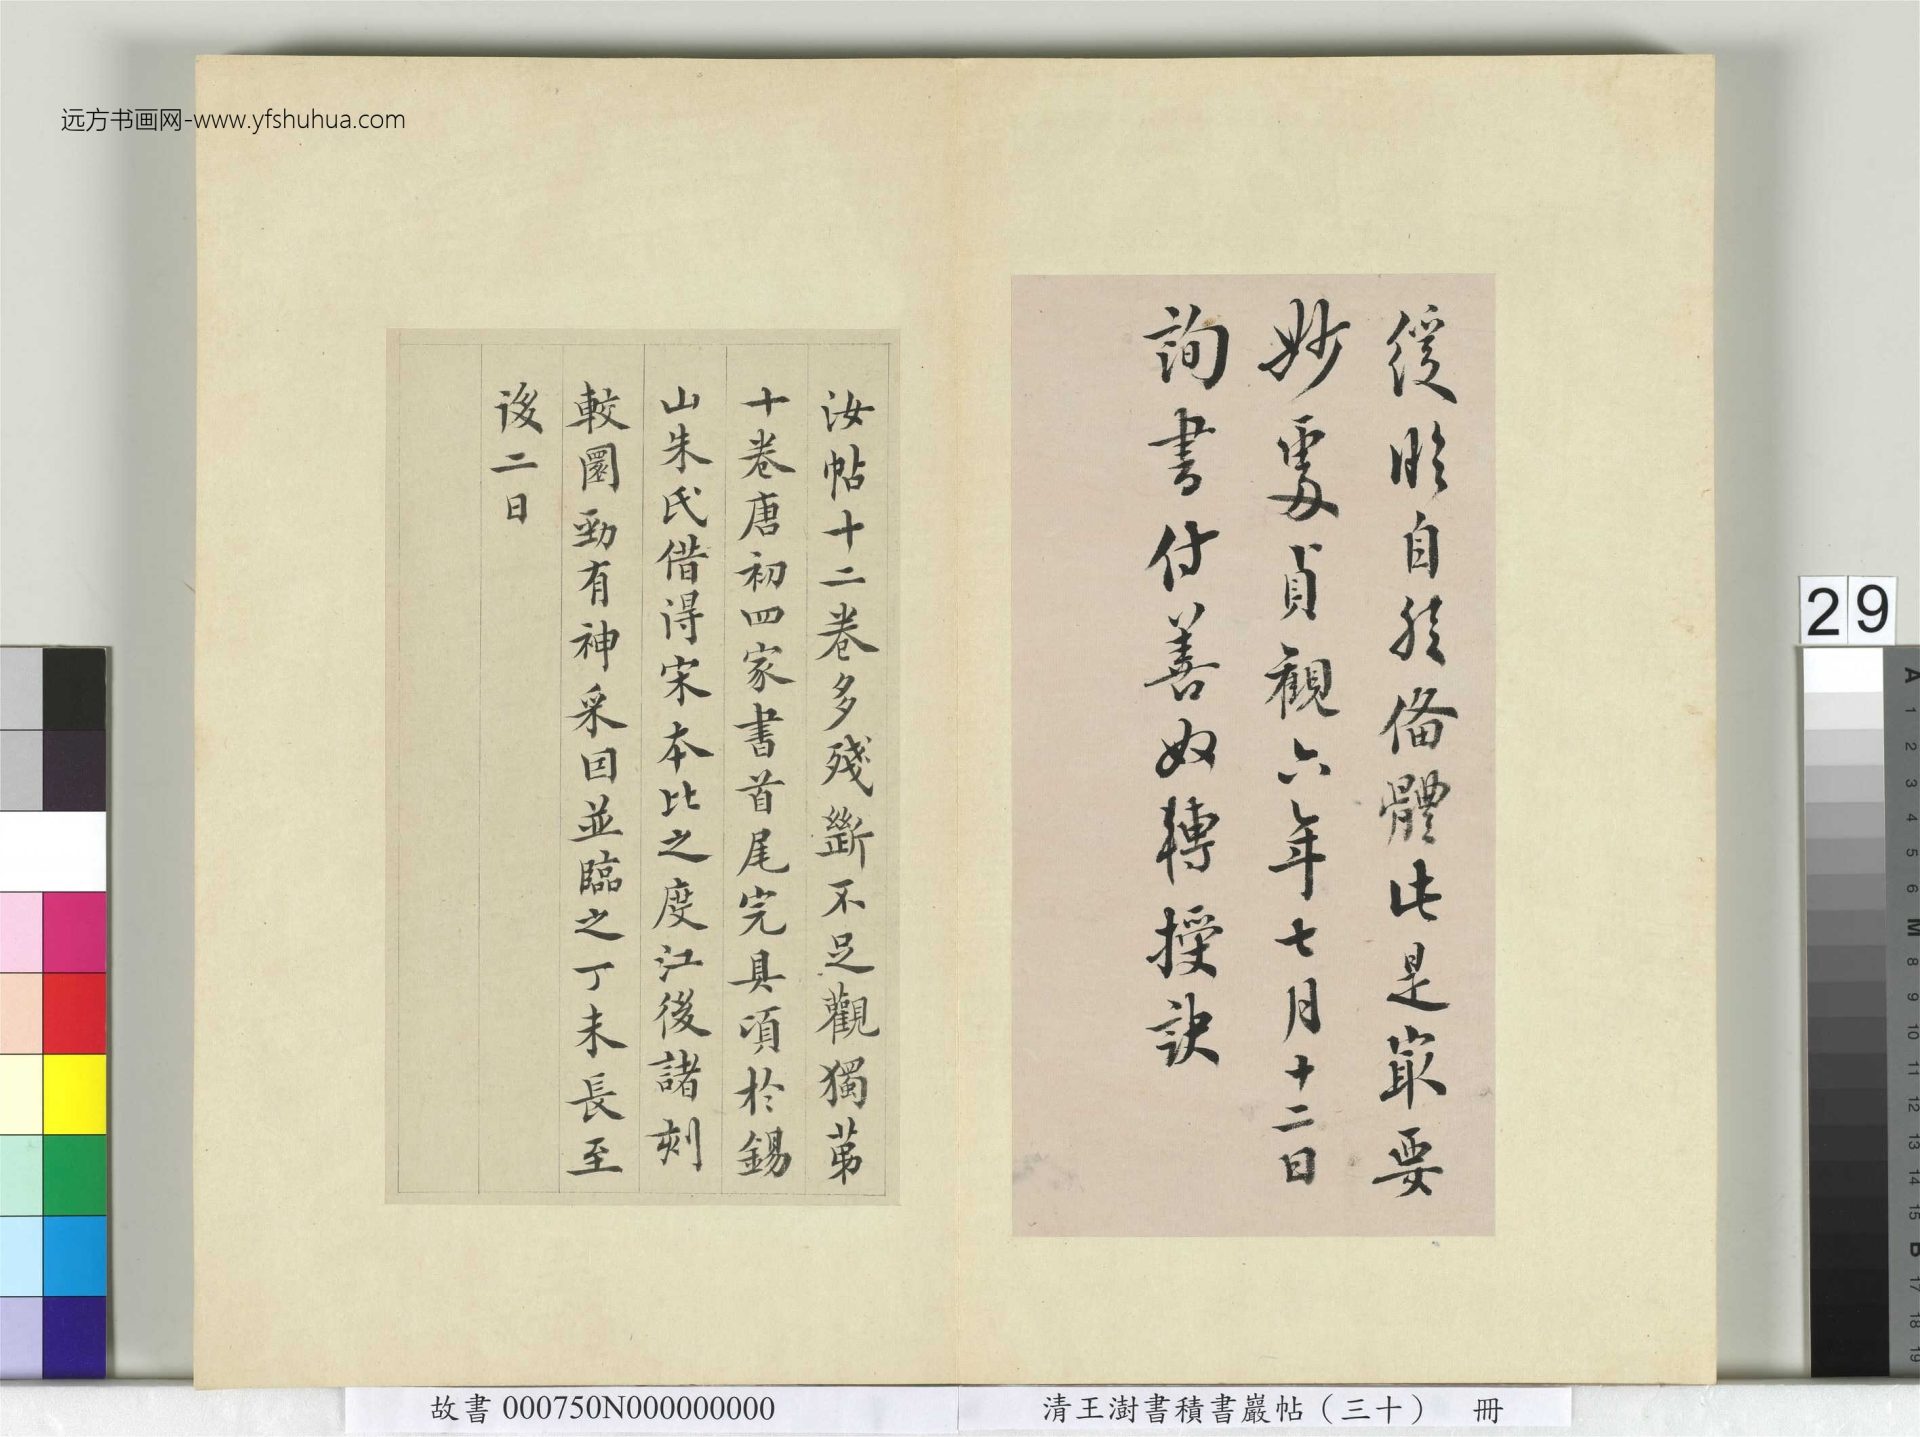 远方书画网-www.yfshuhua.com
緩臨自然備體此是最要
妙處貞觀六年七月十二日
詢書付善奴轉授訣
汝帖十二卷多殘斷不足觀獨苐
十卷唐初四家書首尾完具項於錫
山朱氏借得宋本比之度江後諸刻
較圜勁有神采因並臨之丁未長至
後二日
29
A 1 2 3 4 5 6 M 8 9 10 11 12 13 14 15 B 17 18 19
故書 000750N000000000
清王澍書積書巖帖（三十） 冊